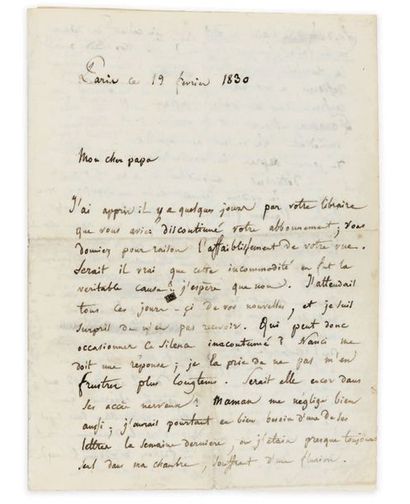 Paris ce 19 février 1830
Mon cher papa
J'ai appris il y a quelques jours par votre libraire
que vous aviez discontinué votre abbonnement; vous
donniez pour raison l'affaiblissement de votre vue.
Serait il vrai que cette incommodité en fut la
veritable cause? j'espère que non. J'attendais
tous ces jours-ci de vos nouvelles, et je suis
surpris de n'en pas recevoir. Qui peut donc
occasionner ce silence inaccoutumé? Nanci me
doit une réponse; je la prie de ne pas m'en
frustrer plus longtems. Serait elle encor dans
ses accès nerveux? Maman me neglige bien
aussi; j'aurais pourtant eu bien besoin d'une de ses
lettres la semaine derniere, où j'étais presque toujours
seul dans ma chambre, souffrant d'une fluxion.